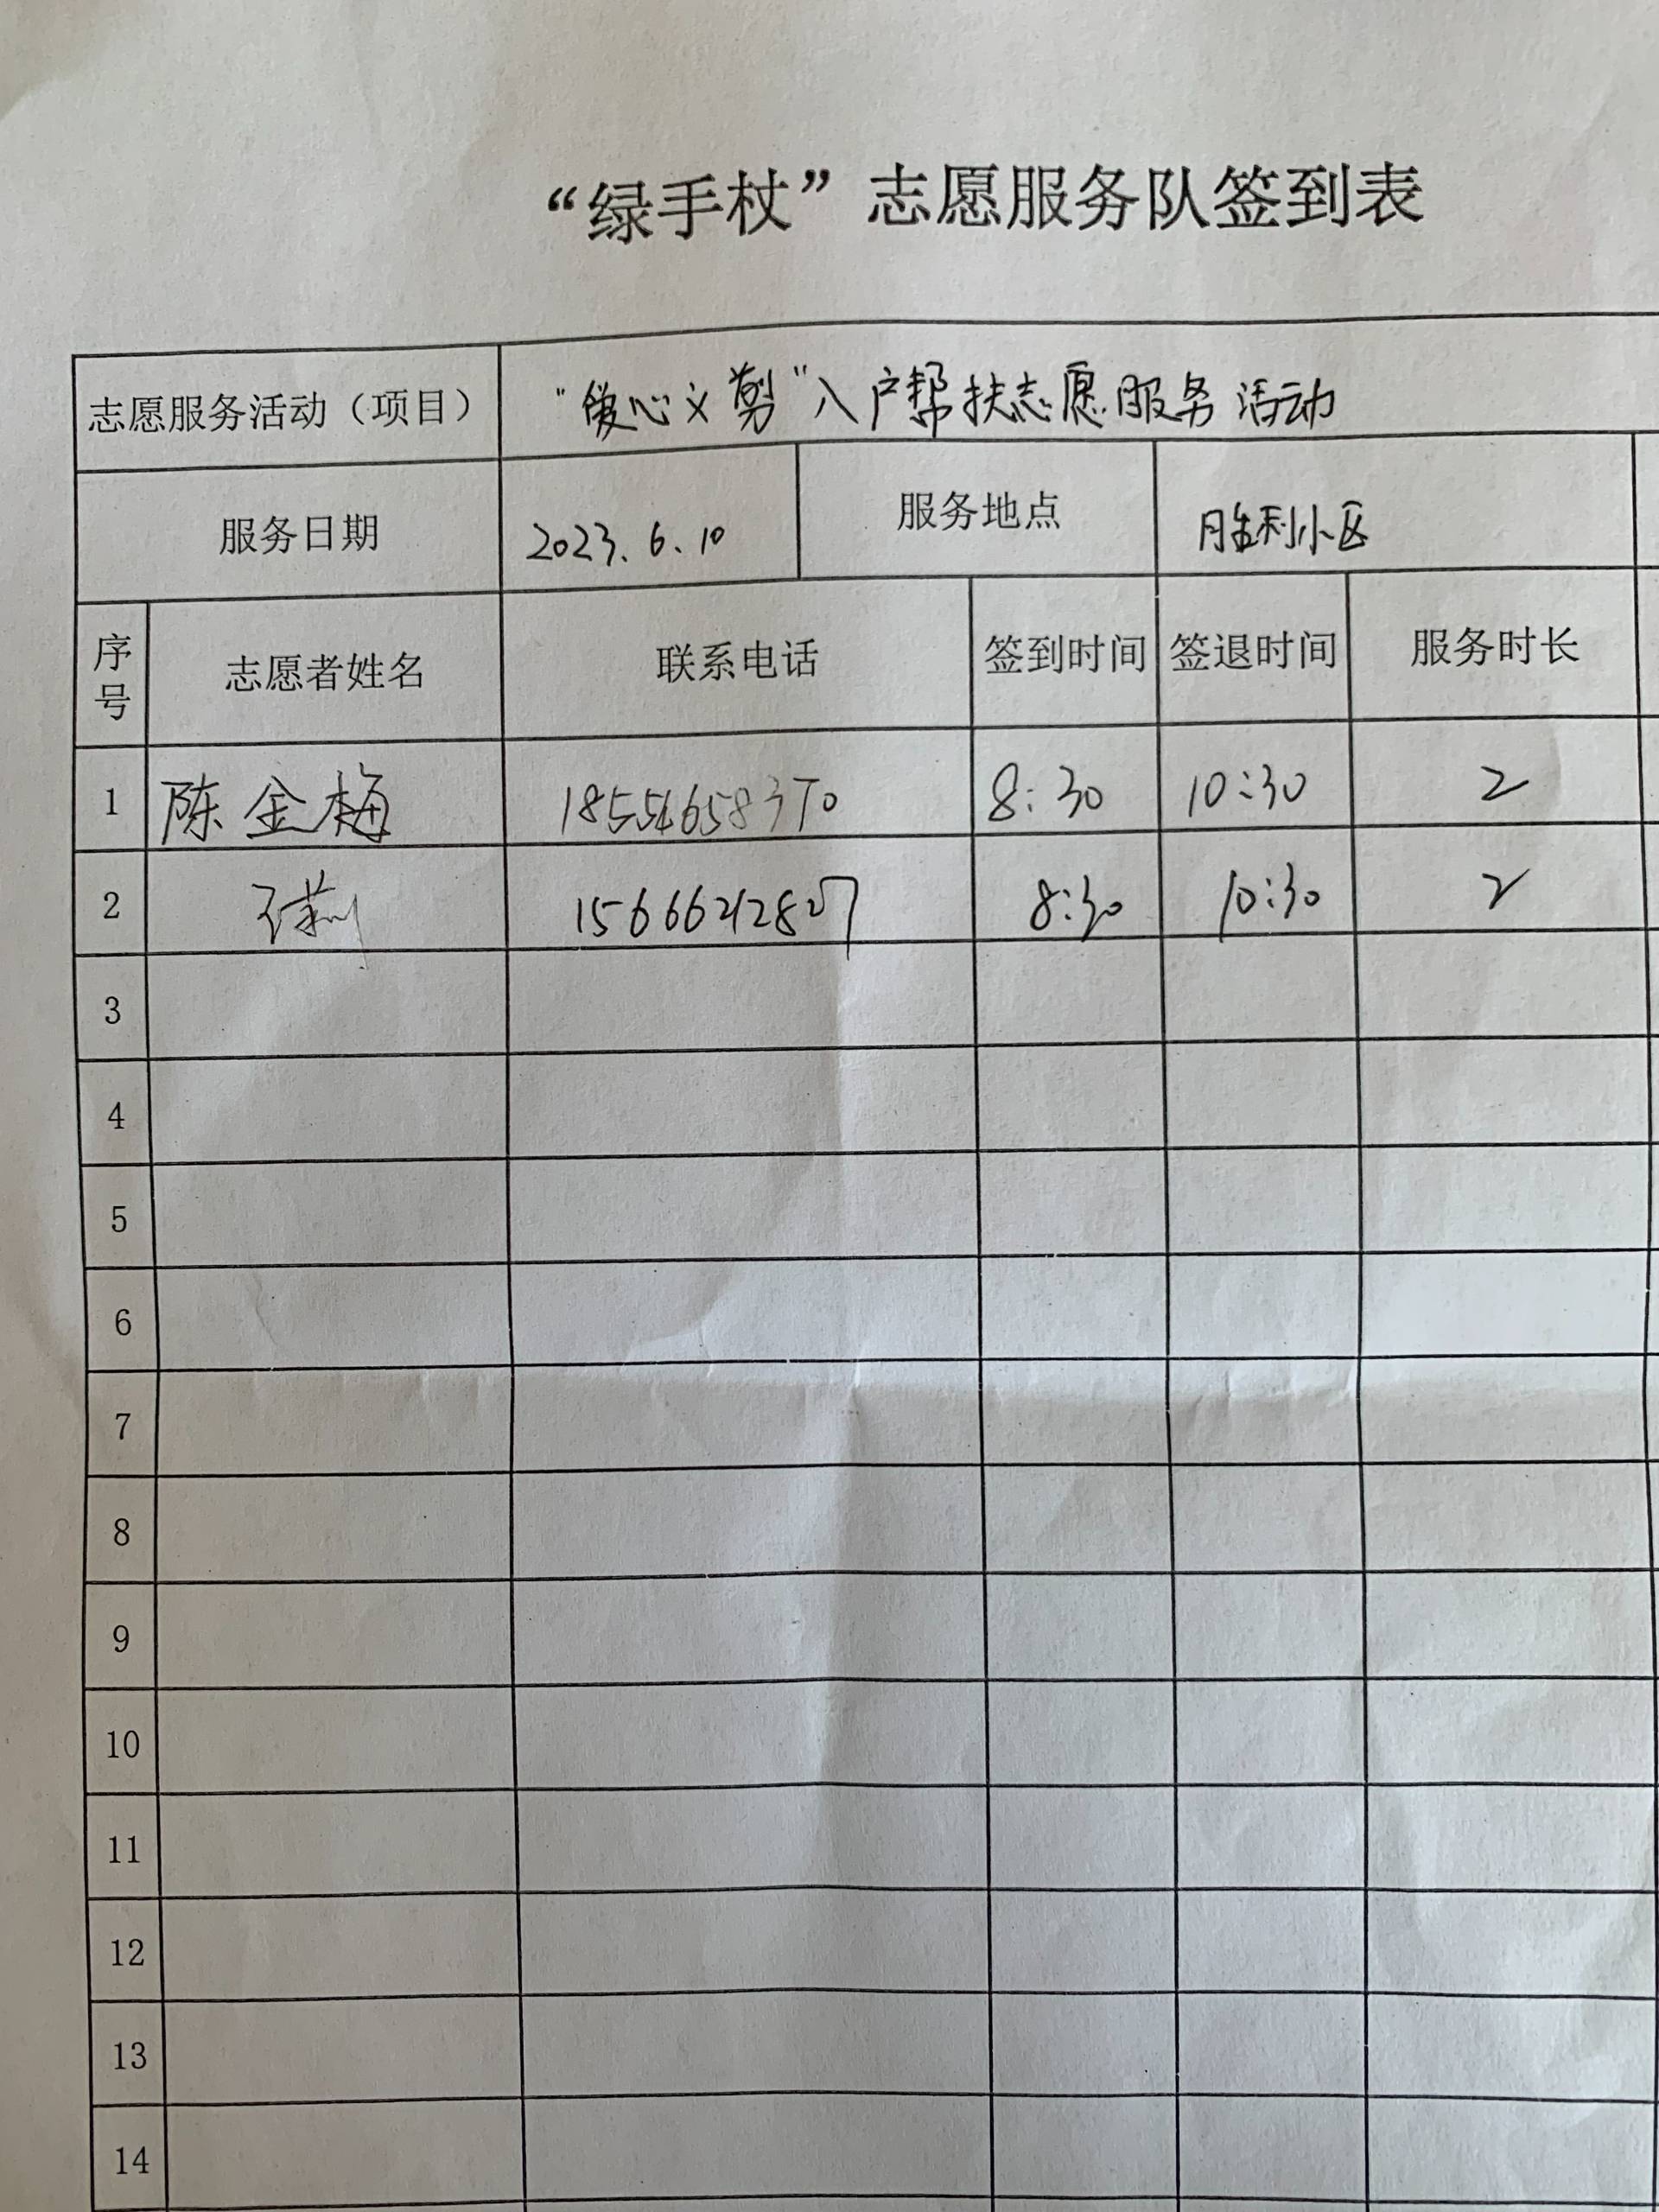 “绿手杖”志愿服务队签到表
志愿服务活动（项目） “爱心义剪”入户帮扶志愿服务活动
服务日期 2023.6.10 服务地点 胜利小区
序号 志愿者姓名 联系电话 签到时间 签退时间 服务时长
1 陈金梅 8:30 10:30 2
2 15666212807 8:30 10:30 2
3
4
5
6
7
8
9
10
11
12
13
14